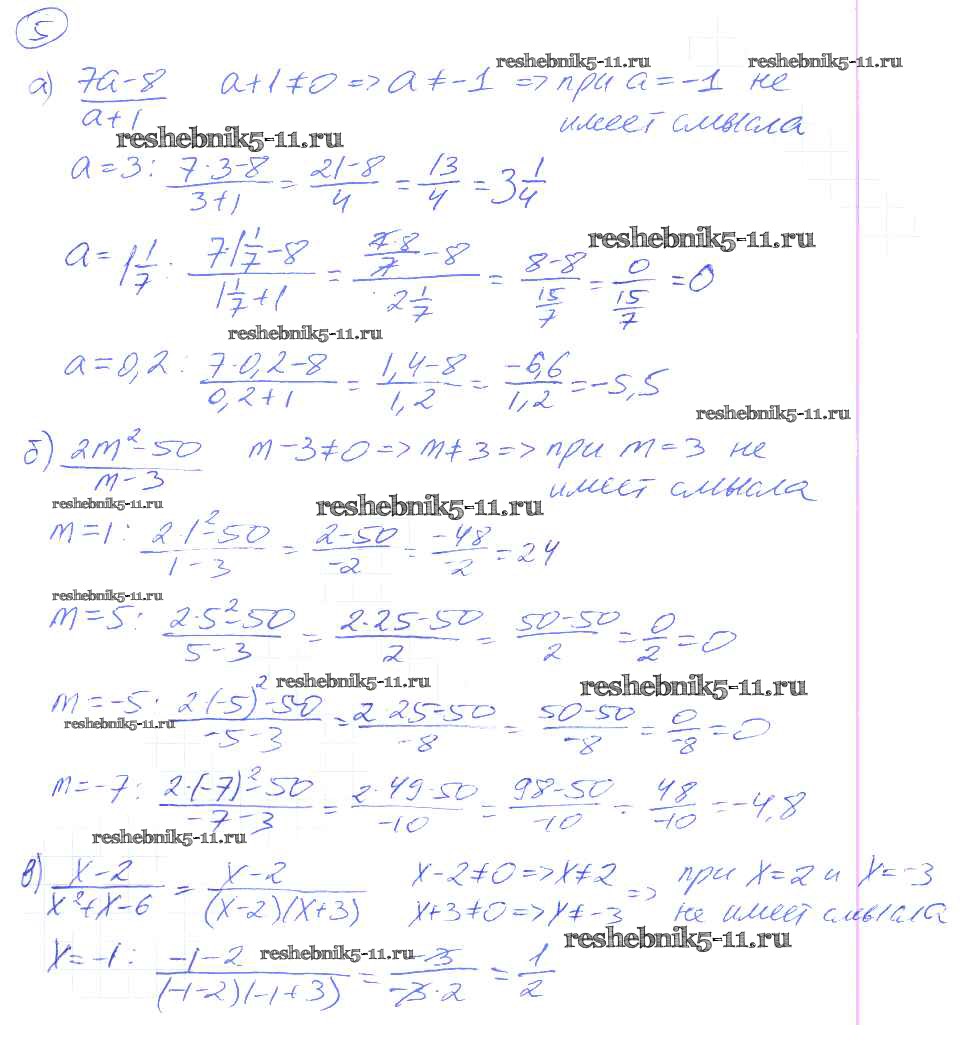 5
reshebnik5-11.ru reshebnik5-11.ru
а) (7a-8)/(a+1) a+1≠0 => a≠-1 => при a=-1 не
имеет смысла
reshebnik5-11.ru
a=3: (7·3-8)/(3+1) = (21-8)/4 = 13/4 = 3 1/4
reshebnik5-11.ru
a=1 1/7: (7·1 1/7-8)/(1 1/7+1) = (7·8/7-8)/(2 1/7) = (8-8)/(15/7) = 0/(15/7) = 0
reshebnik5-11.ru
a=0,2: (7·0,2-8)/(0,2+1) = (1,4-8)/1,2 = -6,6/1,2 = -5,5
reshebnik5-11.ru
б) (2m²-50)/(m-3) m-3≠0 => m≠3 => при m=3 не
имеет смысла
reshebnik5-11.ru reshebnik5-11.ru
m=1: (2·1²-50)/(1-3) = (2-50)/-2 = -48/-2 = 24
reshebnik5-11.ru
m=5: (2·5²-50)/(5-3) = (2·25-50)/2 = (50-50)/2 = 0/2 = 0
reshebnik5-11.ru reshebnik5-11.ru
m=-5: (2(-5)²-50)/(-5-3) = (2 25-50)/-8 = (50-50)/-8 = 0/-8 = 0
reshebnik5-11.ru
m=-7: (2·(-7)²-50)/(-7-3) = (2·49·50)/-10 = (98-50)/-10 = 48/-10 = -4,8
reshebnik5-11.ru
в) (x-2)/(x²+x-6) = (x-2)/((x-2)(x+3)) x-2≠0 => x≠2 => при x=2 и x=-3
x+3≠0 => x≠-3 не имеет смысла
reshebnik5-11.ru reshebnik5-11.ru
x=-1: (-1-2)/((-1-2)(-1+3)) = -3/(-3·2) = 1/2